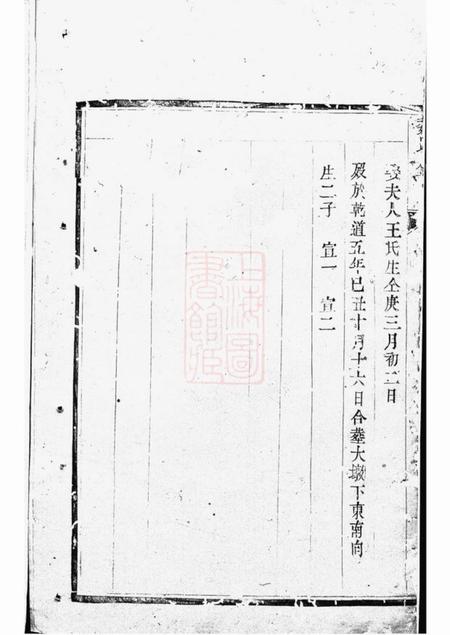 娶夫人王氏生仝庚三月初二日
歿於乾道五年己丑十月十六日合塟大墩下東南向
生二子 宣一 宣二
上海圖
書館藏